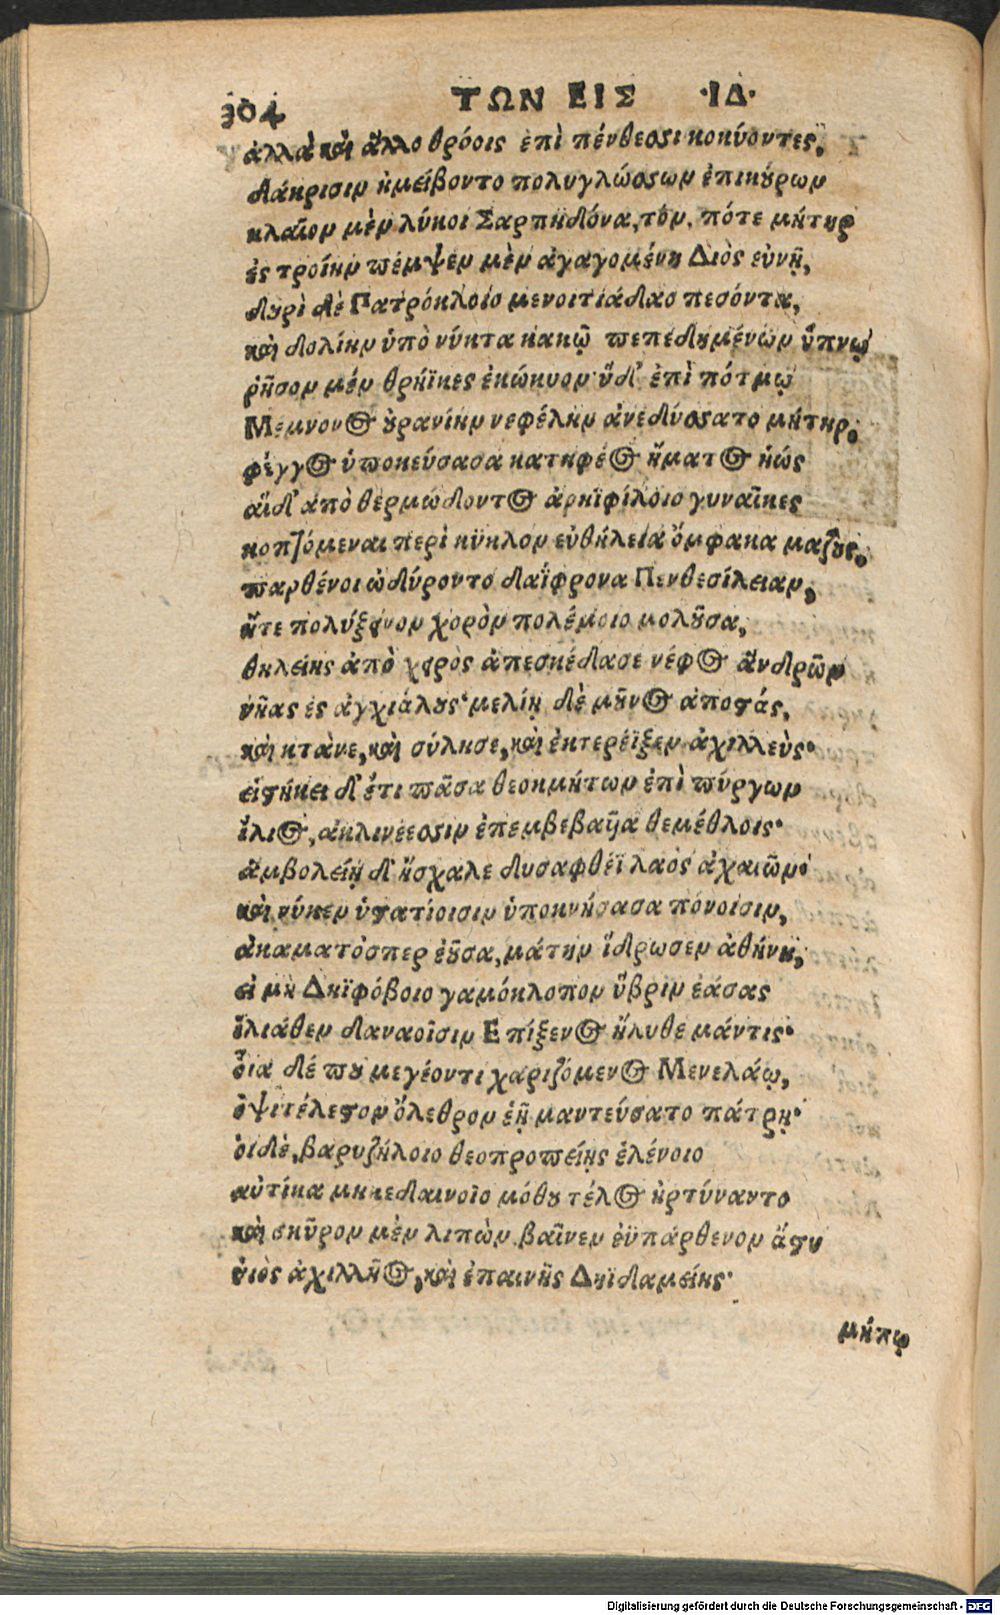 304 ΤΩΝ ΕΙΣ ·ΙΔ·
ἀλλὰ καὶ ἄλλο θρόοις ἐπὶ πένθεσσι κοκύοντες,
δάκρισιν ἠμείβοντο πολυγλώσσων ἐπικούρων
κλαῖον μὲν λύκοι Σαρπηδόνα, τόν. πότε μήτηρ
ἐς τροίην πέμψεν μὲν ἀγαγομένη Διὸς εὐνῇ,
δουρὶ δὲ Πατρόκλοιο μενοιτιάδαο πεσόντα,
καὶ δολίην ὑπὸ νύκτα κακῷ πεπεδημένων ὕπνῳ
ῥῆσον μέν θρήϊκες ἐκώκυον· ἥδ' ἐπὶ πότμῳ
Μεμνονος οὐρανίην νεφέλην ἀνεδύσσατο μήτηρ.
φέγγος ὑποκεύσασα κατηφέος ἤματος ἠώς
αἵδ' ἀπὸ θερμώδοντος ἀρηϊφίλοιο γυναῖκες
κοπτόμεναι περὶ κύκλον εὐθήλεια ὄμφακα μαζοῦς.
παρθένοι ὠδύροντο δαΐφρονα Πενθεσίλειαν,
ἥτε πολύξενον χορὸν πολέμοιο μολοῦσα,
θηλείης ἀπὸ χερὸς ἀπεσκέδασε νέφος ἀνδρῶν
νῆας ἐς ἀγχιάλους· μελίῃ δὲ μῆνος ἀποστάς,
καὶ κτάνε, καὶ σύλησε, καὶ ἐκτερέϊξεν ἀχιλλεὺς·
εἱστήκει δ' ἔτι πᾶσα θεοκμήτων ἐπὶ πύργων
ἴλιος, ἀκλινέεσσιν ἐπεμβεβαυῖα θεμέθλοις·
ἀμβολείῃ δ' ἤσχαλε δυσαφθέϊ λαὸς ἀχαιῶν·
καὶ νύκεν ὑστατίοισιν ὑποκνήσασα πόνοισιν,
ἀκαματόσπερ ἐοῦσα, μάτην ἵδρωσεν ἀθήνη,
εἰ μὴ Δηϊφόβοιο γαμόκλοπον ὕβριν ἐάσας
ἰλιάθεν δαναοῖσιν Επίξενος ἤλυθε μάντις·
οἷα δέ που μεγέοντι χαριζόμενος Μενελάῳ,
ὀψιτέλεστον ὄλεθρον ἑῇ μαντεύσατο πάτρῃ·
οἱ δὲ, βαρυζήλοιο θεοπροπείης ἑλένοιο
αὐτίκα μηκεδαινοῖο μόθου τέλος ἠρτύναντο
καὶ σκῦρον μὲν λιπὼν βαῖνεν ἐϋπάρθενον ἄστυ
υἱὸς ἀχιλλῆος, καὶ ἐπαινῆς Δηϊδαμείης·
μήπω